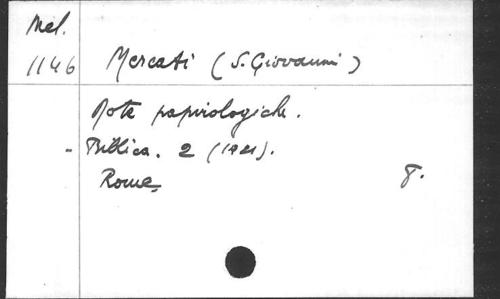 Mel.
1146 Mercati (S. Giovanni)
Note papirologiche.
- Biblica. 2 (1921).
Rome, 8.